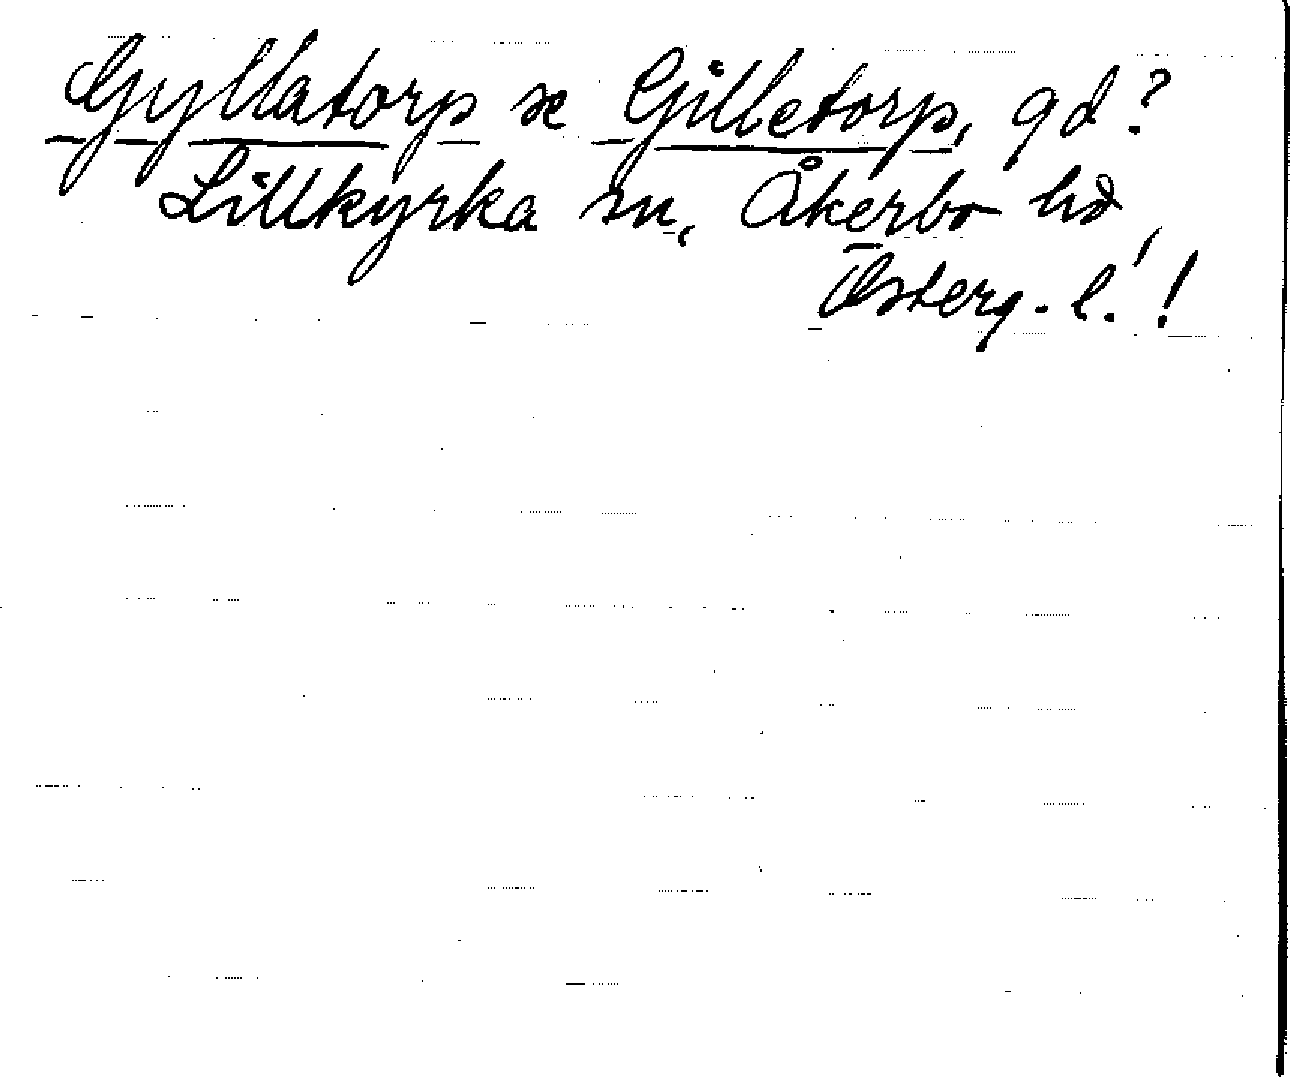 Gyllatorp se Gilletorp, gd?
Lillkyrka sn, Åkerbo hd,
Österg. l.!!